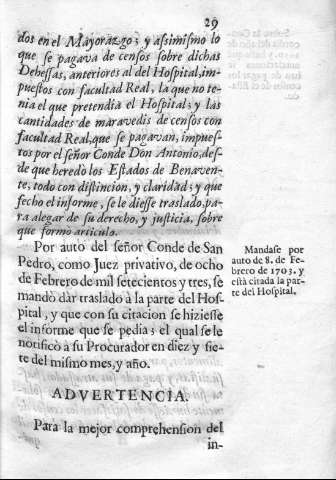 29
dos en el Mayorazgo; y assimismo lo
que se pagava de censos sobre dichas
Dehessas, anteriores al del Hospital, im-
puestos con facultad Real, la que no te-
nia el que pretendia el Hospital; y las
cantidades de maravedis de censos con
facultad Real, que se pagavan, impues-
tos por el señor Conde Don Antonio, des-
de que heredò los Estados de Benaven-
te, todo con distincion, y claridad; y que
fecho el informe, se le diesse traslado, pa-
ra alegar de su derecho, y justicia, sobre
que formò articulo.
Por auto del señor Conde de San
Pedro, como Juez privativo, de ocho
de Febrero de mil setecientos y tres, se
mandò dàr traslado à la parte del Hos-
pital, y que con su citacion se hiziesse
el informe que se pedia; el qual se le
notificò a su Procurador en diez y sie-
te del mismo mes, y año.
Mandase por
auto de 8. de Fe-
brero de 1703. y
està citada la par-
te del Hospital.
ADVERTENCIA.
Para la mejor comprehension del
in-